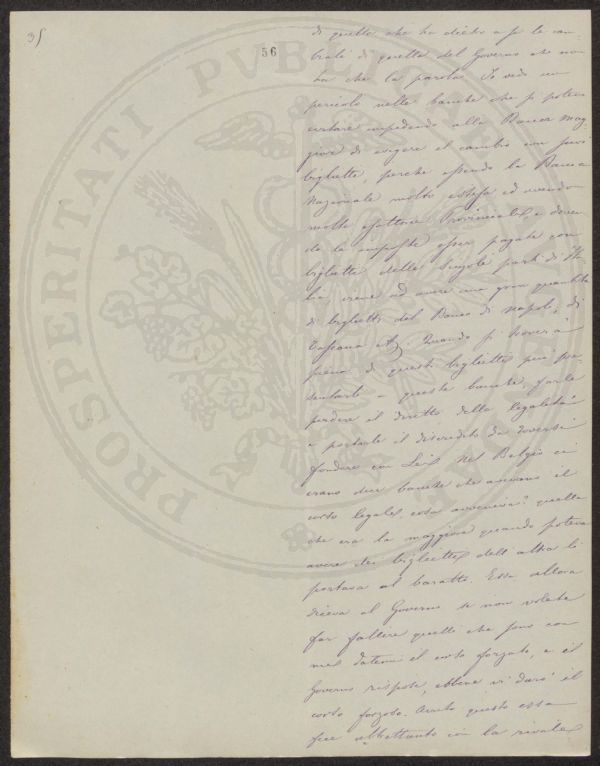 35
56
di quello che ha dietro a se le cam-
biali di quello del Governo che non
ha che la parola. Io vedo un
pericolo nelle banche che si poteva
evitare impedendo alla Banca mag-
giore di esigere il cambio con suoi
biglietti, perche essendo la Banca
Nazionale molto estesa ed avendo
molte esattorie Provinciali, e doven-
do le imposte esser pagate con
biglietti delle singole parti di Ita-
lia, viene ad avere una gran quantità
di biglietti del Banco di Napoli, di
Toscana etc. Quando si troverà
piena di questi biglietti può pre-
sentarli a queste banche, farle
perdere il diritto della legalità
e portarle il discredito da doversi
fondere con Lei. Nel Belgio ci
erano due banche che avevano il
corso legale, cosa avveniva? quella
che era la maggiore quando poteva
avere dei biglietti dell'altra li
portava al baratto. Essa allora
diceva al Governo se non volete
far fallire quelli che sono con
me datemi il corso forzato, e il
Governo rispose, ebbene vi darò il
corso forzoso. Avuto questo essa
fece altrettanto con la rivale
PROSPERITATI PVBLICAE